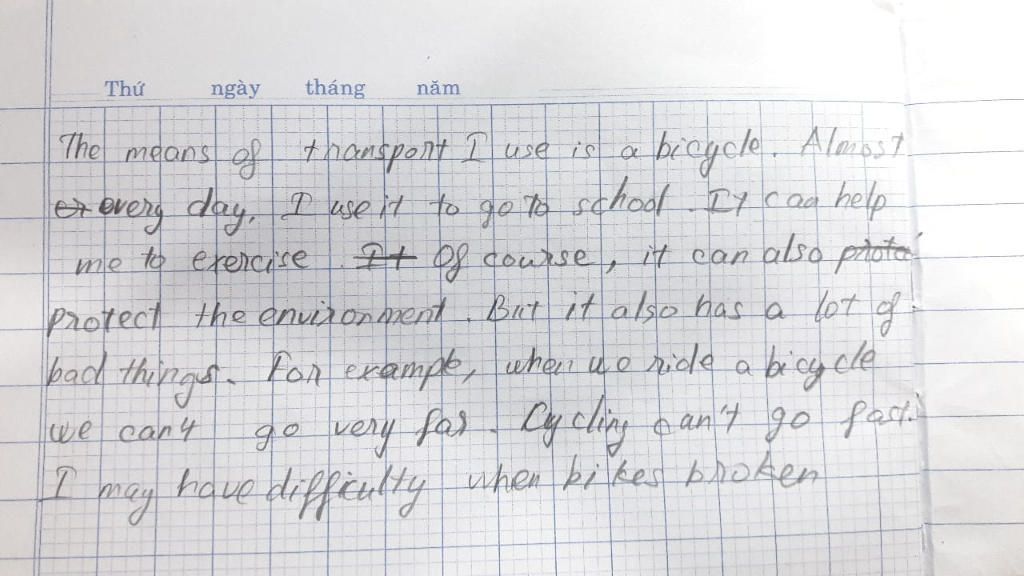 Thứ ngày tháng năm
The means of transport I use is a bicycle. Almost
every day, I use it to go to school. It can help
me to exercise. Of course, it can also
protect the environment. But it also has a lot of
bad things. For example, when we ride a bicycle
we can't go very far. Cycling can't go fast.
I may have difficulty when bikes broken